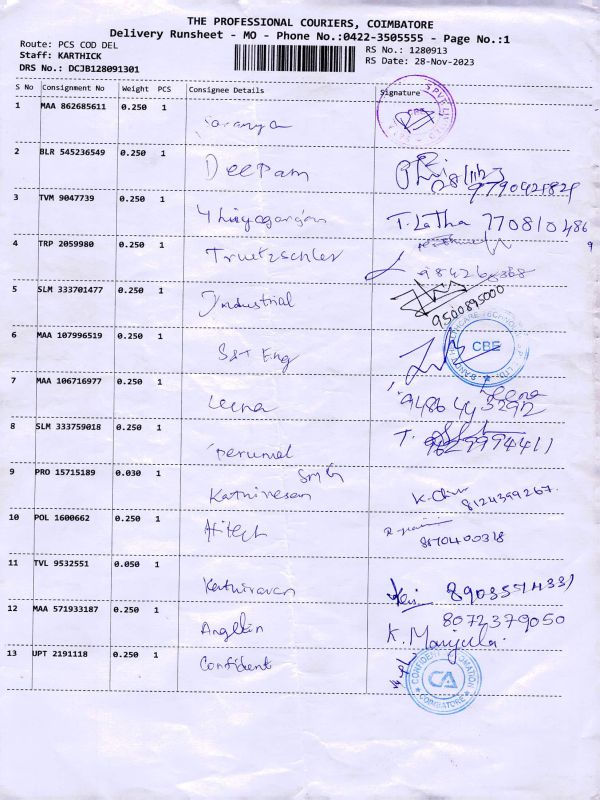 THE PROFESSIONAL COURIERS, COIMBATORE
Delivery Runsheet - MO - Phone No.:0422-3505555 - Page No.:1
Route: PCS COD DEL
RS No.: 1280913
Staff: KARTHICK
RS Date: 28-Nov-2023
DRS No.: DCJB128091301
S No Consignment No Weight PCS Consignee Details Signature
1 MAA 862685611 0.250 1 Saranya CBE
2 BLR 545236549 0.250 1 Deepam
3 TVM 9047739 0.250 1 T. Latha 770810486
9
4 TRP 2059980 0.250 1 Truetzschler
5 SLM 333701477 0.250 1 Industrial
9500895000
6 MAA 107996519 0.250 1 S&T Eng CBE
7 MAA 106716977 0.250 1 Leena Leena
8 SLM 333759018 0.250 1 Perumal T.
9 PRO 15715189 0.030 1 Kathiresan
8124399267.
10 POL 1600662 0.250 1 Hitech
11 TVL 9532551 0.050 1 Kathiravan
12 MAA 571933187 0.250 1 8072379050
K. Manjula.
13 UPT 2191118 0.250 1 Confident CONFIDENT AUTOMATION CA COIMBATORE